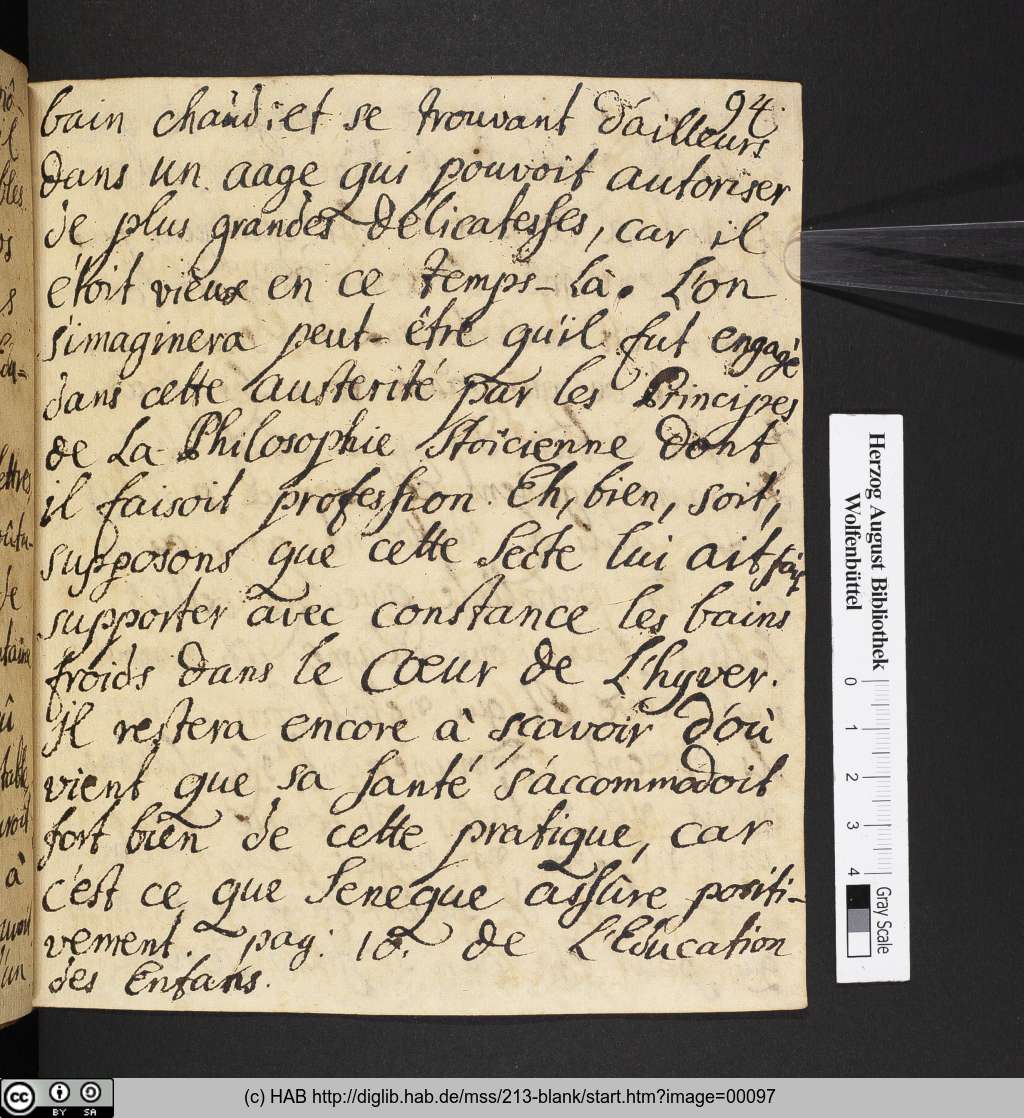 94.
bain chaud; et se trouvant d'ailleurs
dans un aage qui pouvoit autoriser
de plus grandes délicatesses, car il
étoit vieux en ce temps-là. L'on
s'imaginera peut-être qu'il fut engagé
dans cette austerité par les Principes
de La Philosophie Stoïcienne dont
il faisoit profession. Eh, bien, soit,
supposons que cette Secte lui ait fait
supporter avec constance les bains
froids dans le Cœur de L'hyver.
Il restera encore à sçavoir d'où
vient que sa santé s'accommodoit
fort bien de cette pratique, car
c'est ce que Seneque assûre positi-
vement. pag: 10. de L'Education
des Enfans.
ettres
à
Herzog August Bibliothek
Wolfenbüttel
0 1 2 3 4
Gray Scale
cc BY SA
(c) HAB http://diglib.hab.de/mss/213-blank/start.htm?image=00097